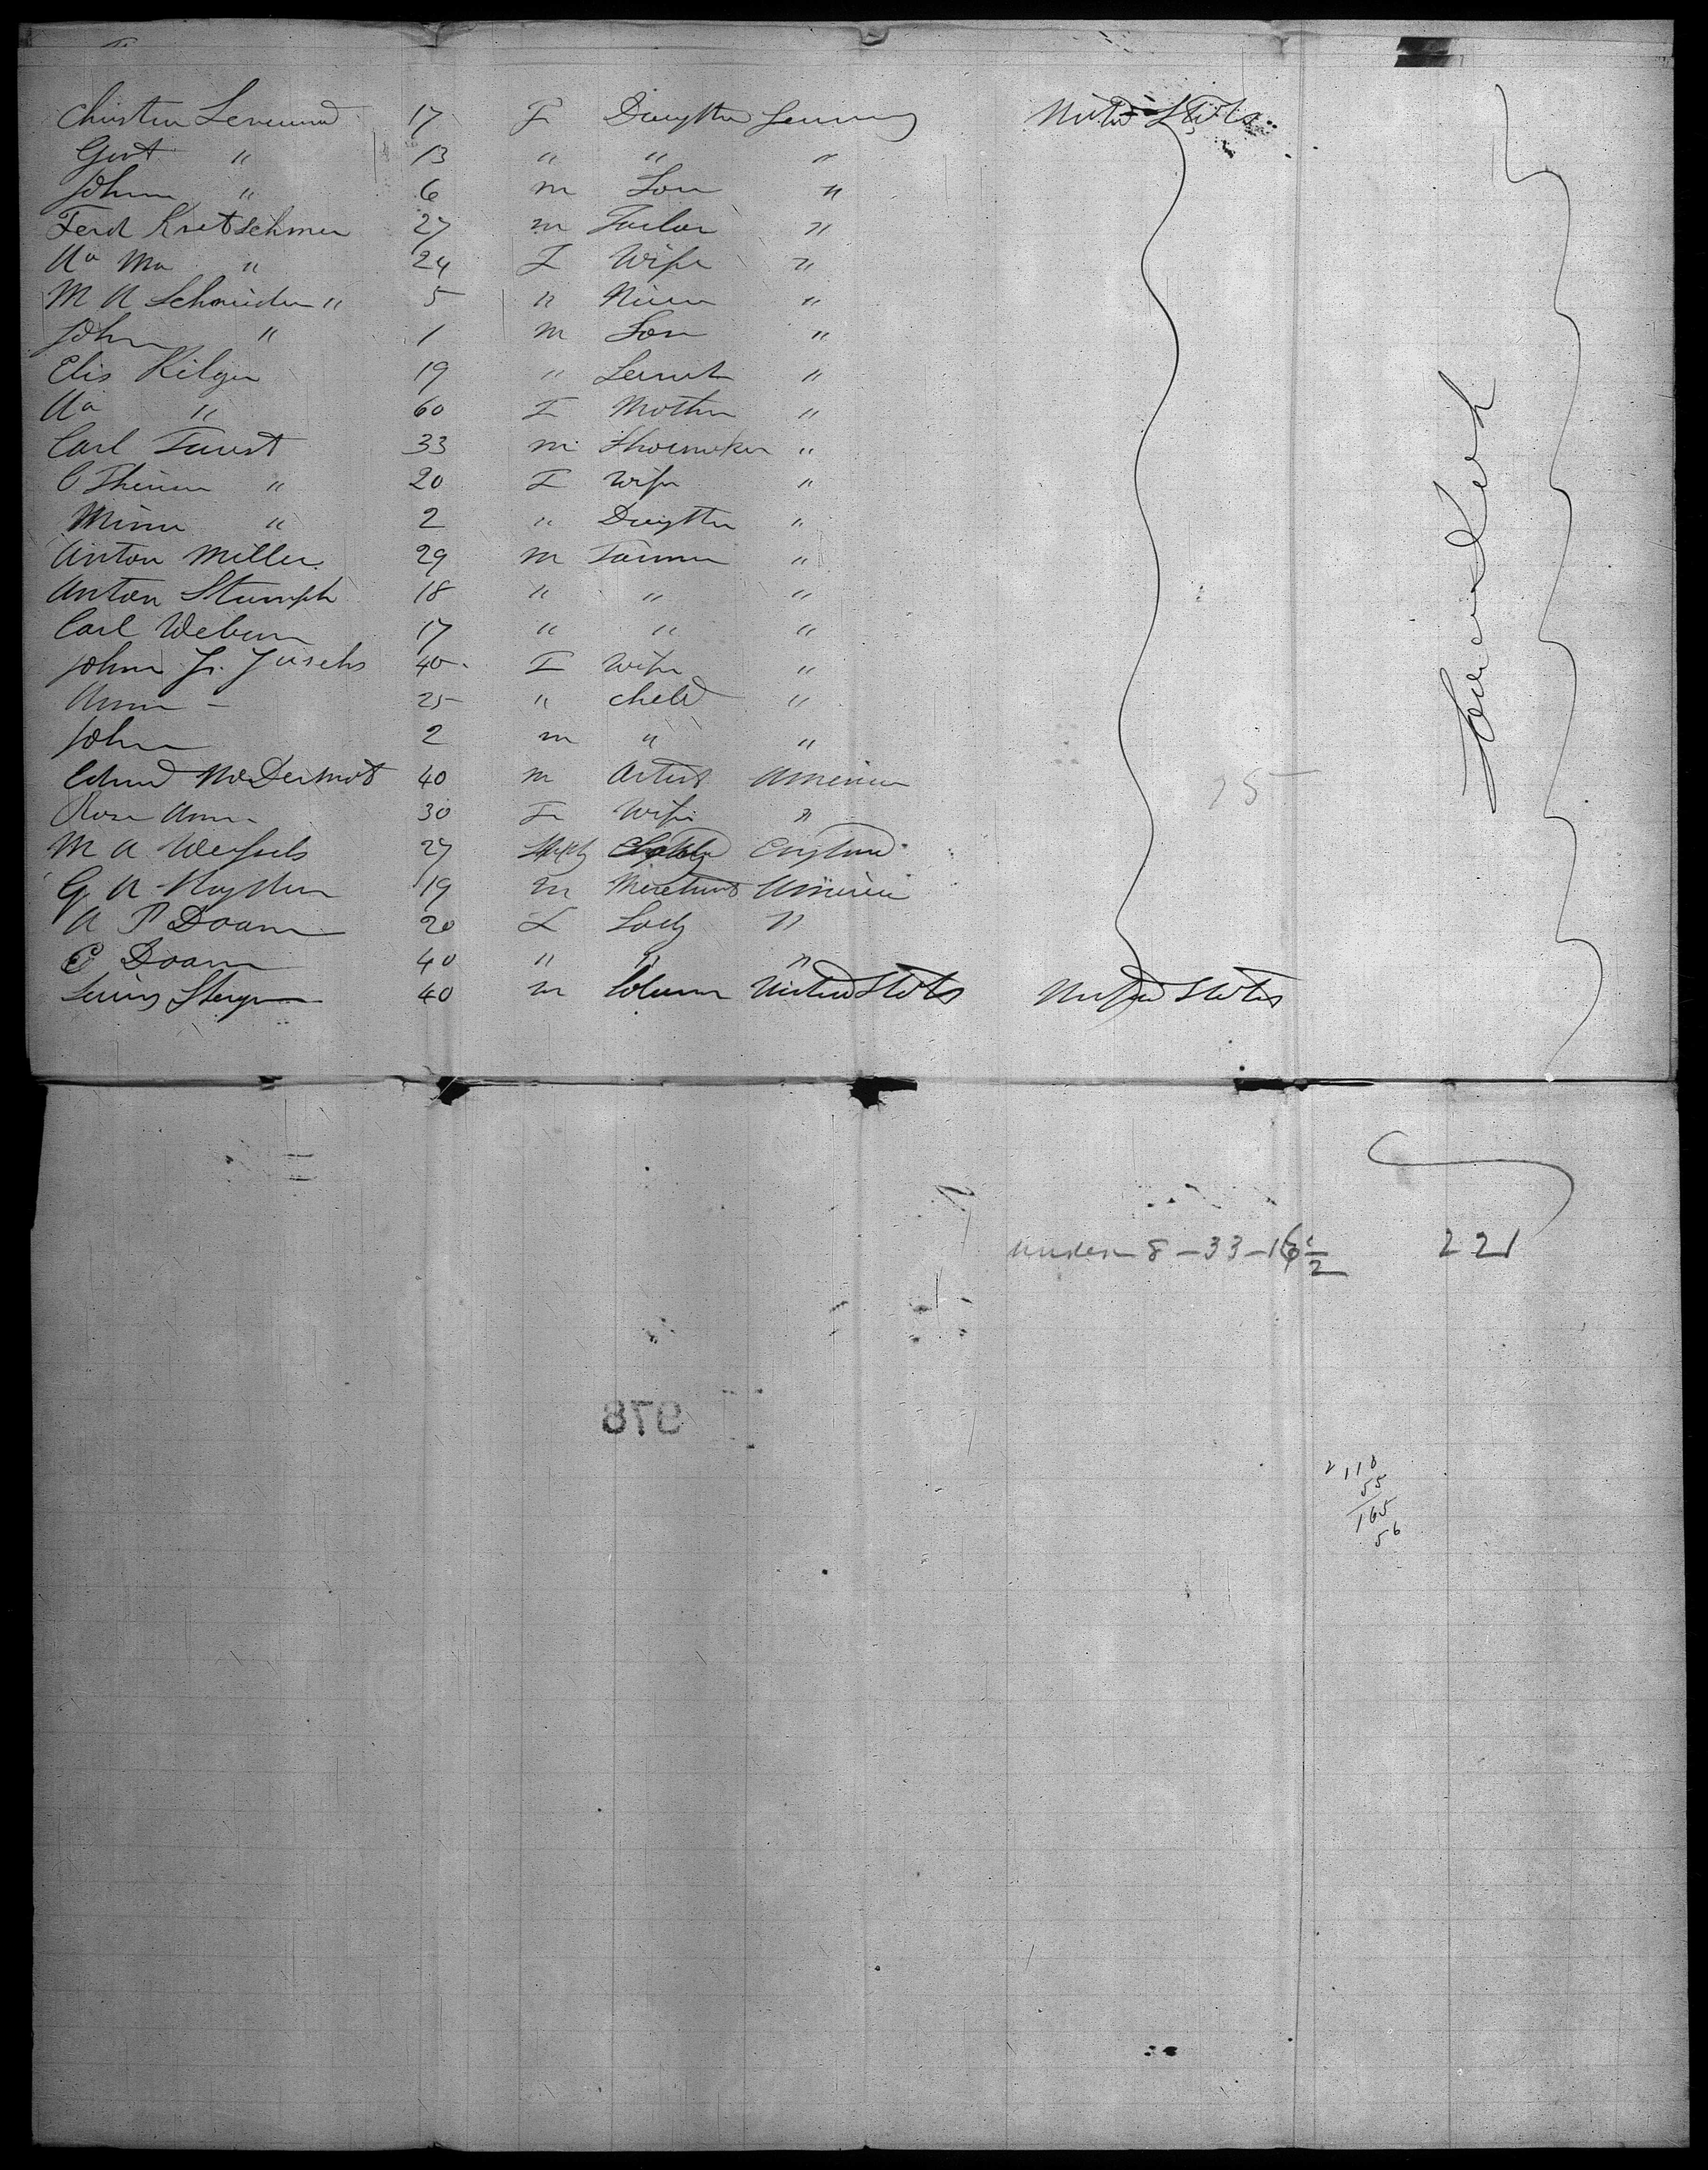 17 F Daughter Germany United States
Gert " 13 " " "
John " 6 m Son "
Ferd Kretschmer 27 m Tailor "
Aa Ma " 24 F Wife "
M A Schneider " 5 " Niece "
John " 1 m Son "
Elis Kilger 19 " Servant "
Aa " 60 F Mother "
Carl Faust 33 m Shoemaker "
" 20 F Wife "
Minna " 2 " Daughter "
Anton Miller 29 m Farmer "
Anton Stumpf 18 " " "
Carl Weber 17 " " "
John 40 F Wife "
Anna - 25 " child "
John 2 m " "
Edmd McDermot 40 m Artist America
Rose Ann - 30 F Wife "
M A Wessels 27 England
G A 19 m Merchant America
A P Doane 20 F Lady "
C Doane 40 " " "
40 m United States United States
25
under 8 - 33 - 16 1/2 221
978
2 110
55
165
56